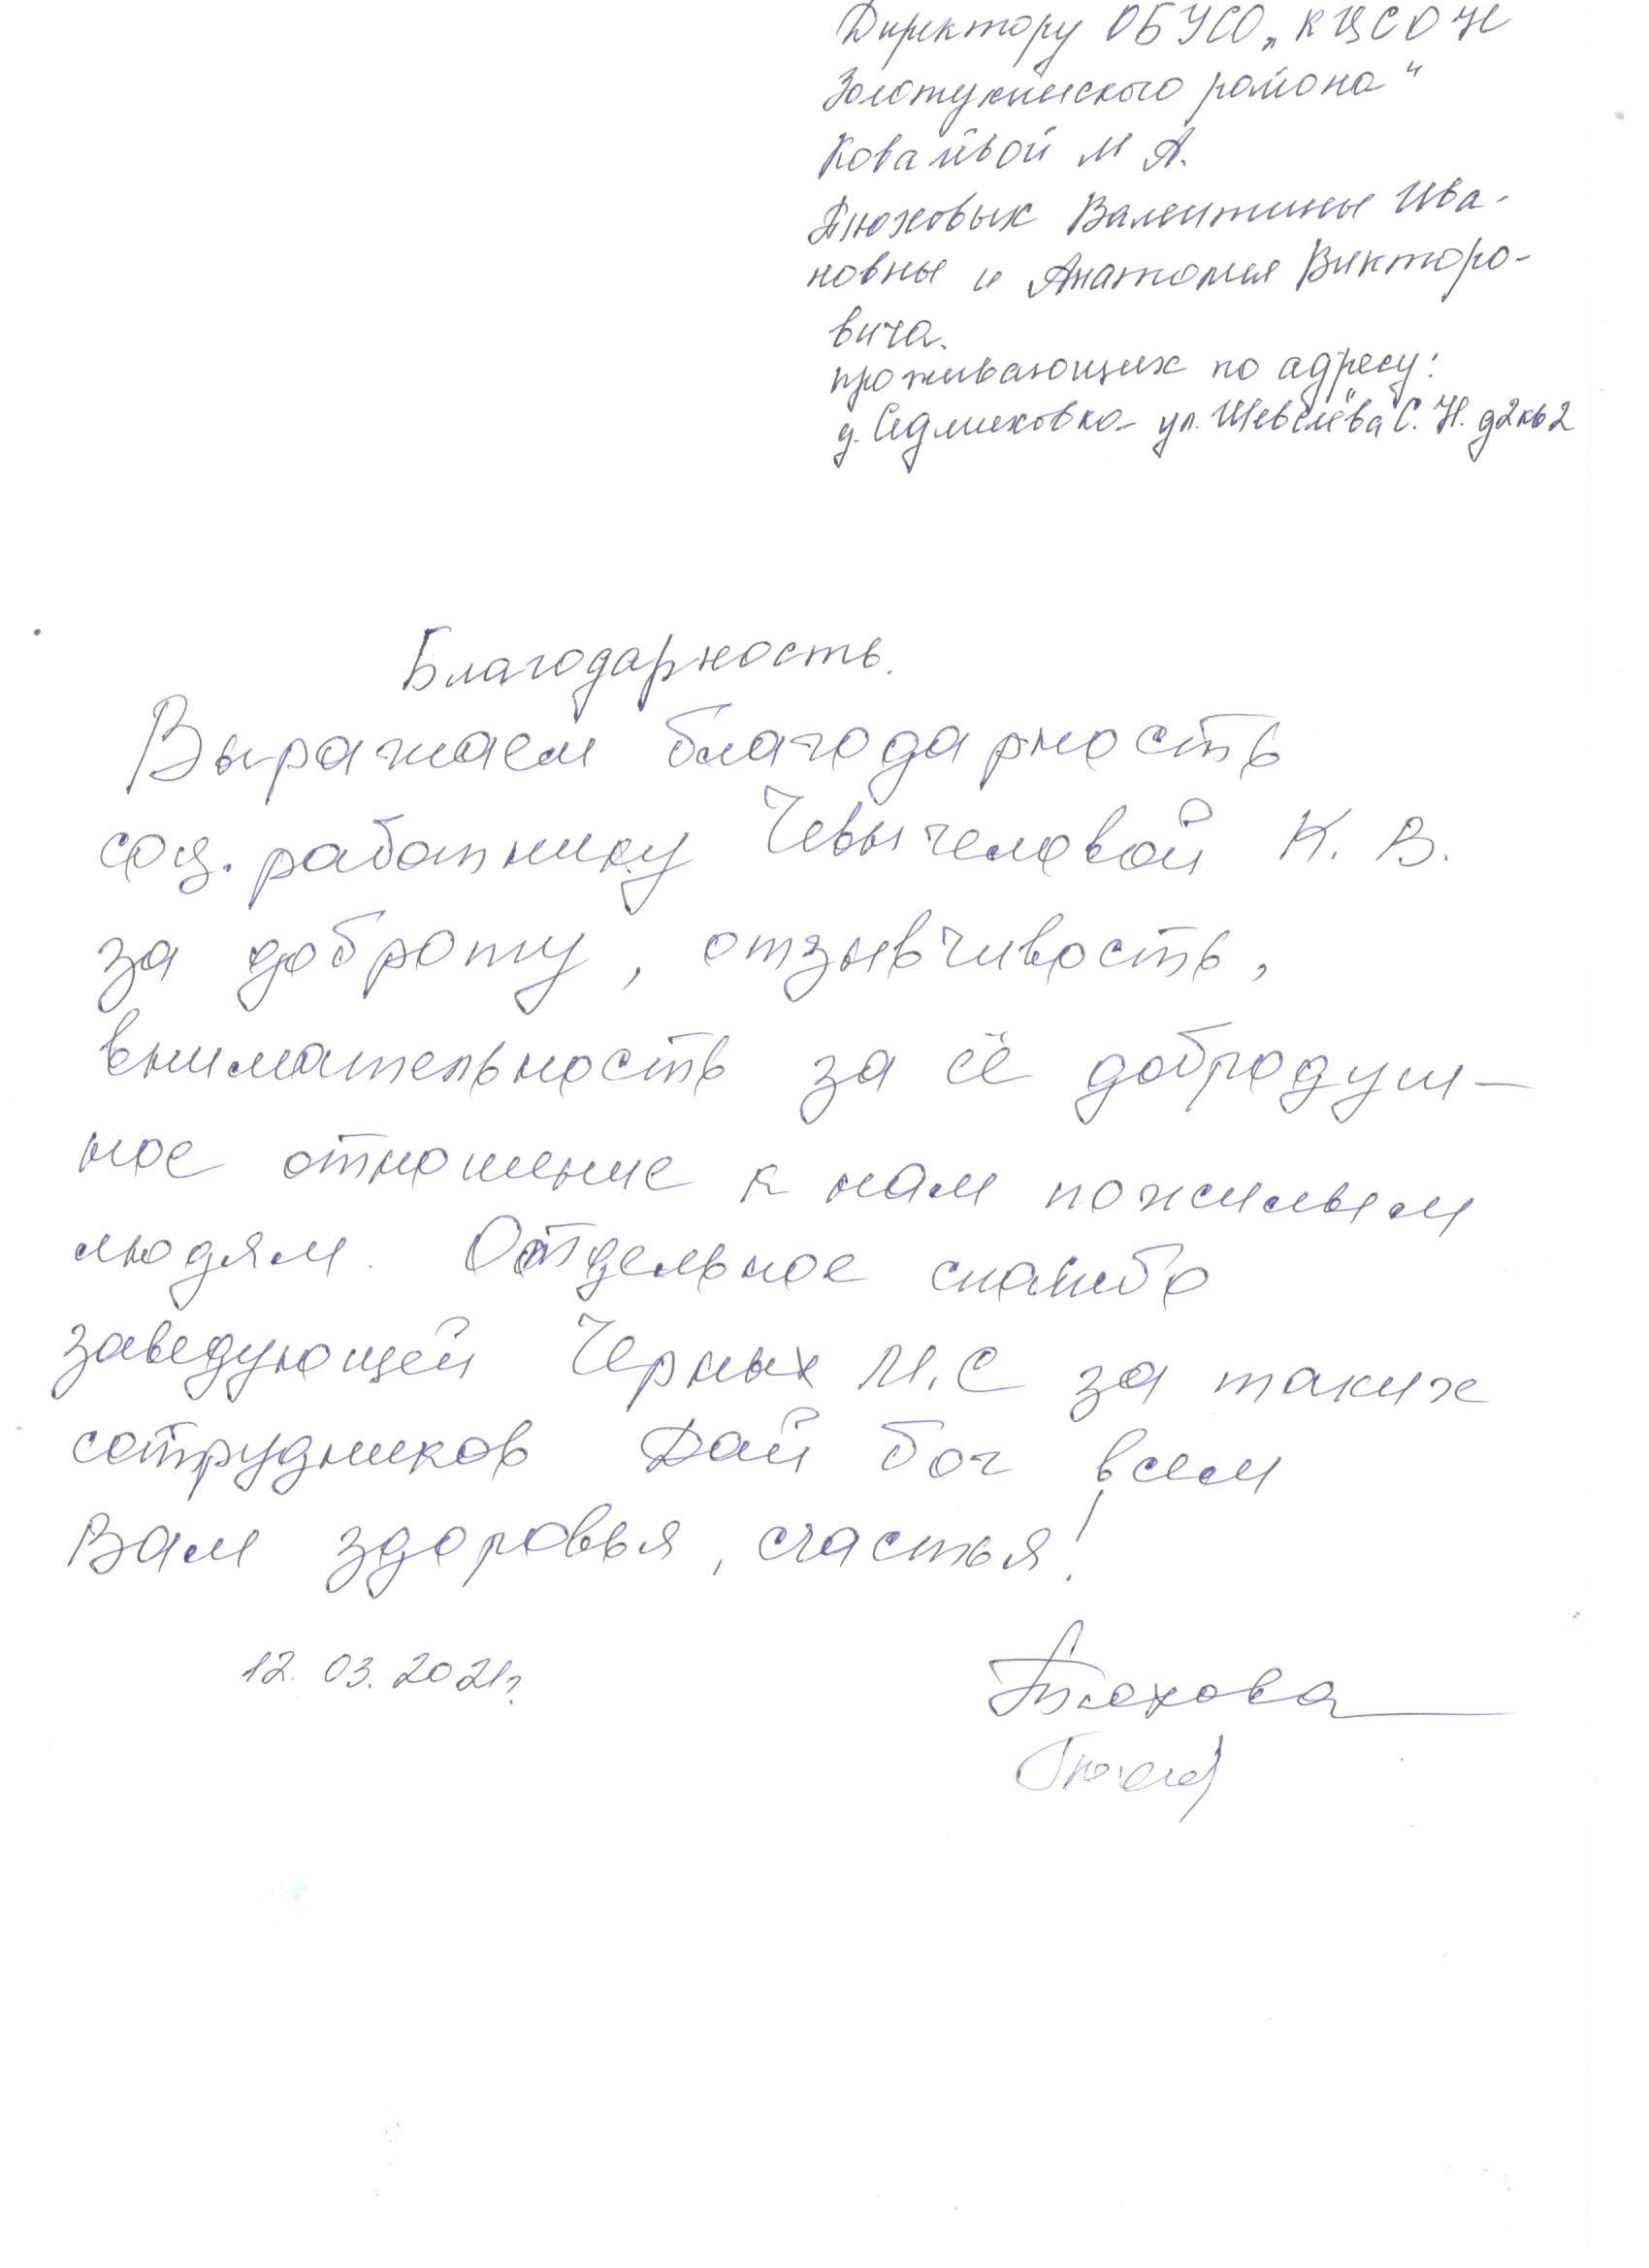 Директору ОБУСО „КЦСОН
Золотухинского района“
Ковалёвой М А.
Тюховых Валентины Ива-
новны и Анатолия Викторо-
вича.
проживающих по адресу:
д. Седмиховка ул. Шевелёва С. Н. д2кв2
Благодарность.
Выражаем благодарность
соц. работнику Чевычеловой К. В.
за доброту, отзывчивость,
внимательность за её добродуш-
ное отношение к нам пожилым
людям. Отдельное спасибо
заведующей Черных М.С за таких
сотрудников Дай бог всем
Вам здоровья, счастья!
12. 03. 2021г.
Тюхова